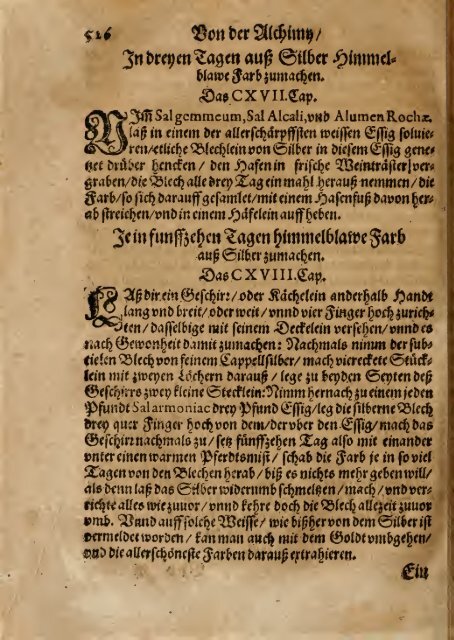 526 Von der Alchimy/
In dreyen Tagen auß Silber Himmel-
blawe Farb zumachen.
Das CXVII. Cap.
NJm̃ Sal gemmeum, Sal Alcali, vnd Alumen Rochæ,
laß in einem der allerschärpffsten weissen Essig soluie-
ren/etliche Blechlein von Silber in diesem Essig gene-
tzet drüber hencken/ den Hafen in frische Weinträster ver-
graben/die Blech alle drey Tag ein mahl herauß nemmen/ die
Farb/so sich darauff gesamlet/mit einem Hasenfuß davon her-
ab streichen/vnd in einem Häfelein auff heben.
Je in funffzehen Tagen himmelblawe Farb
auß Silber zumachen.
Das CXVIII. Cap.
LAß dir ein Geschirr/oder Kächelein anderhalb Handt
lang vnd breit/oder weit/vnnd vier Finger hoch zurich-
ten/ dasselbige mit seinem Deckelein versehen/vnnd es
nach Gewonheit damit zumachen: Nachmals nimm der sub-
tielen Blech von feinem Cappellsilber/ mach viereckete Stück-
lein mit zweyen Löchern darauß/ lege zu beyden Seyten deß
Geschirrs zwey kleine Stecklein: Nimm hernach zu einem jeden
Pfundt Salarmoniac drey Pfund Essig/leg die silberne Blech
drey quer Finger hoch von dem/der vber den Essig/mach das
Geschirr nachmals zu/ setz fünffzehen Tag also mit einander
vnter einen warmen Pferdtsmist/ schab die Farb je in so viel
Tagen von den Blechen herab/ biß es nichts mehr geben will/
als denn laß das Silber widerumb schmeltzen/ mach/vnd ver-
richte alles wie zuuor/ vnnd kehre doch die Blech allezeit zuuor
vmb. Vnnd auff solche Weiß/ wie bißher von dem Silber ist
vermeldet worden/ kan man auch mit dem Goldt vmbgehen/
vnd die allerschöneste Farben darauß extrahieren.
Ein